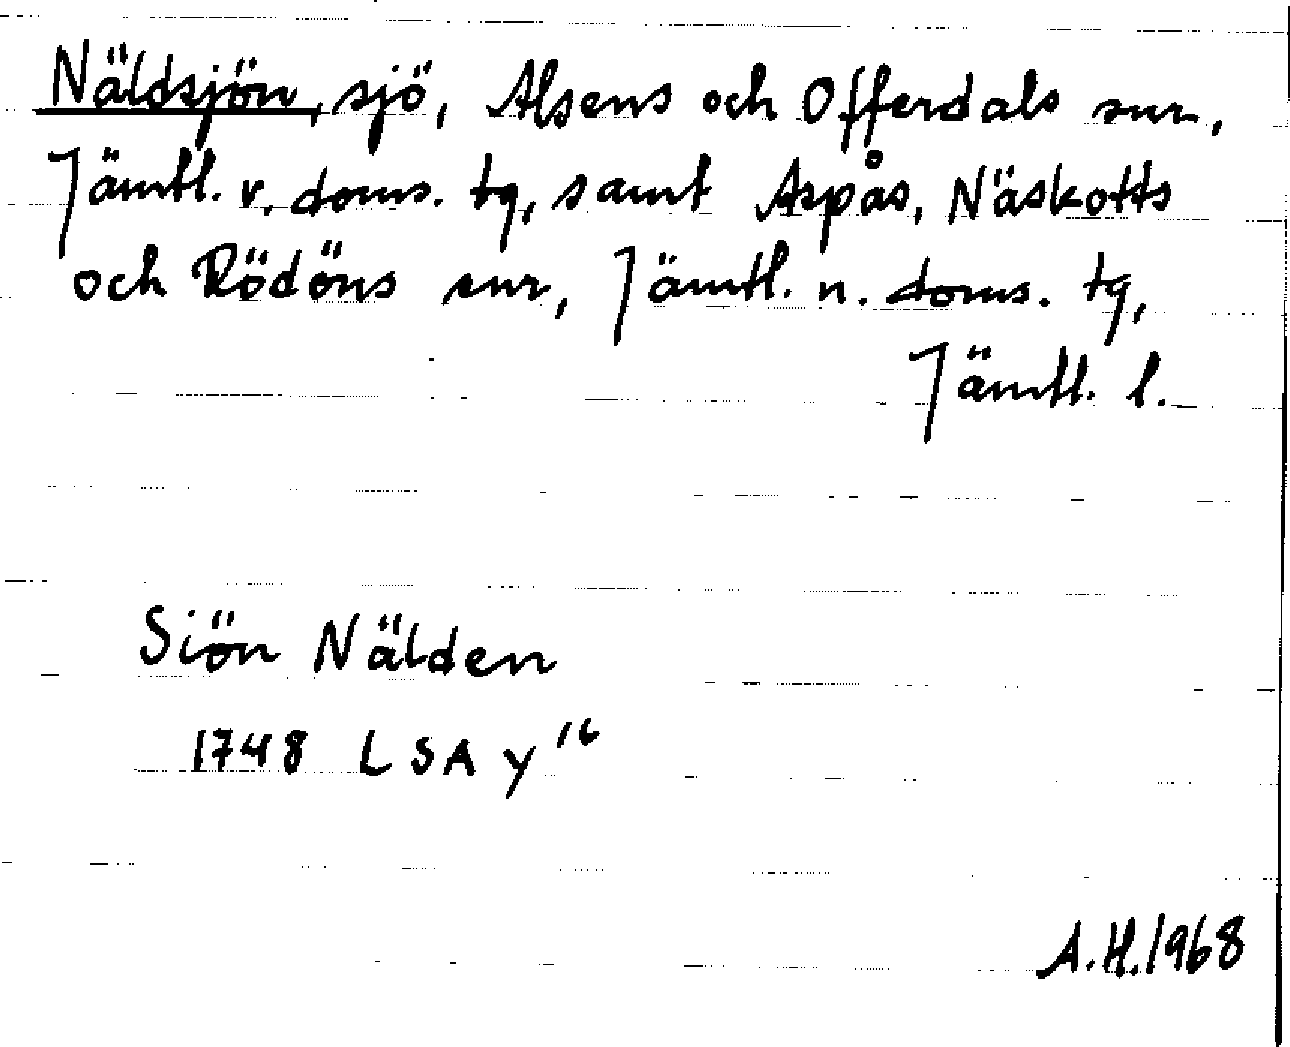 Näldsjön, sjö, Alsens och Offerdals snr,
Jämtl. v. doms. tg, samt Aspås, Näskotts
och Rödöns snr, Jämtl. n. doms. tg,
Jämtl. l.
Siön Nälden
1748 LSA Y 16
A.H. 1968